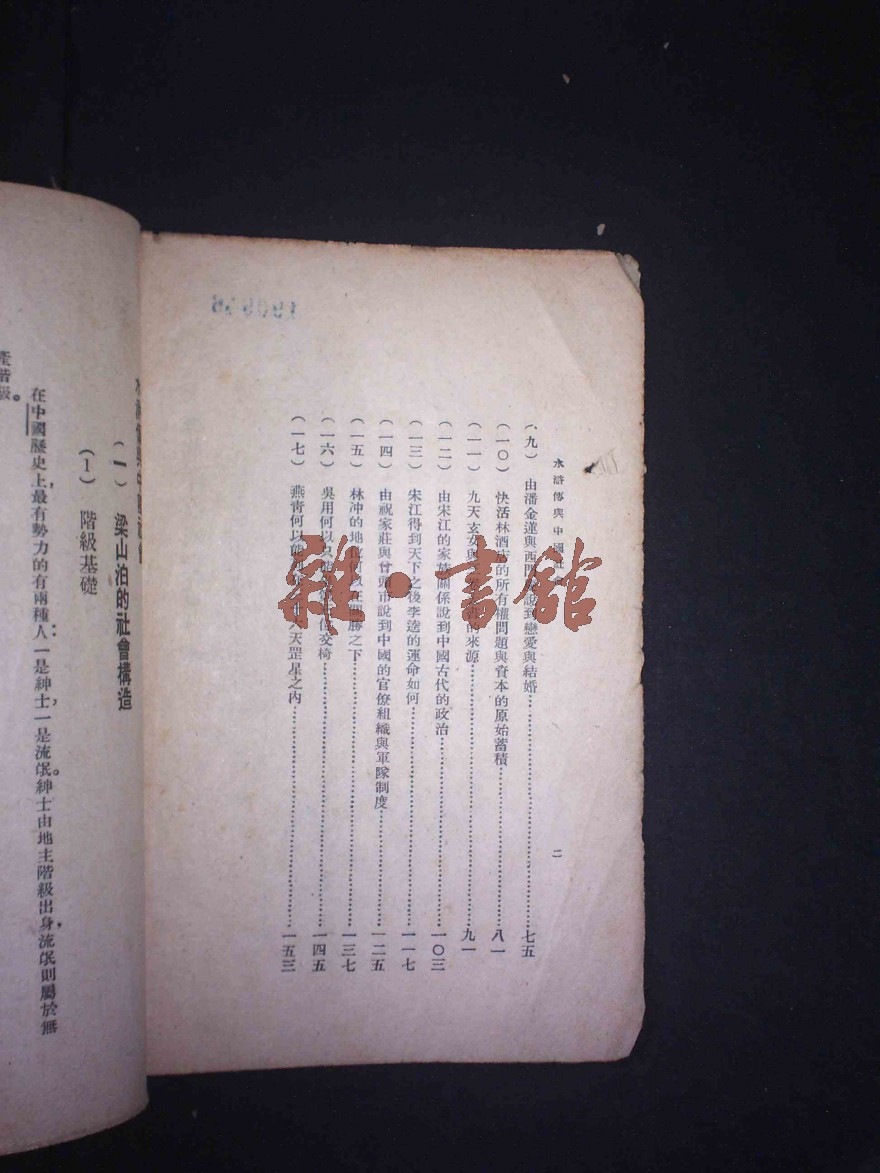 水滸傳與中國社會
二
(九) 由潘金蓮與西門慶說到戀愛與結婚……七五
(一〇) 快活林酒店的所有權問題與資本的原始蓄積……八一
(一一) 九天玄女與 的來源……九一
(一二) 由宋江的家族關係說到中國古代的政治……一〇三
(一三) 宋江得到天下之後李逵的運命如何……一一七
(一四) 由祝家莊與曾頭市說到中國的官僚組織與軍隊制度……一二五
(一五) 林冲的地位何以在關勝之下……一三七
(一六) 吳用何以只 交椅……一四五
(一七) 燕青何以能列 天罡星之內……一五三
(一) 梁山泊的社會構造
(1) 階級基礎
在中國歷史上,最有勢力的有兩種人:一是紳士,一是流氓。紳士由地主階級出身,流氓則屬於無
產階級。
雜·書館